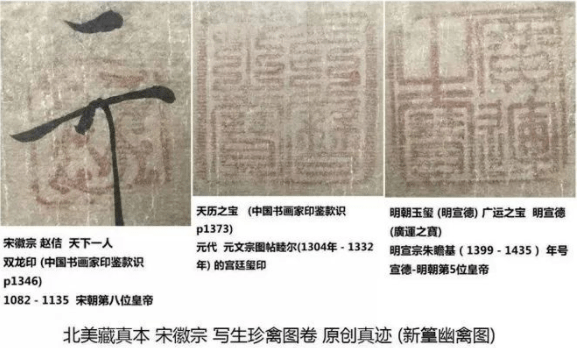 廣運
之寶
宋徽宗 赵佶 天下一人
双龙印 (中国书画家印鉴款识
p1346)
1082 - 1135 宋朝第八位皇帝
天历之宝 (中国书画家印鉴款识
p1373)
元代 元文宗图帖睦尔(1304年 - 1332
年) 的宫廷玺印
明朝玉玺 (明宣德) 广运之宝 明宣德
(廣運之寶)
明宣宗朱瞻基 ( 1399 - 1435 ) 年号
宣德-明朝第5位皇帝
北美藏真本 宋徽宗 写生珍禽图卷 原创真迹 (新篁幽禽图)